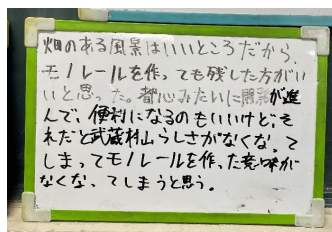 畑のある風景はいいところだから、
モノレールを作っても残した方がい
いと思った。都心みたいに開発が進
んで、便利になるのもいいけど、そ
れだと武蔵村山らしさがなくなって
しまってモノレールを作った意味が
なくなってしまうと思う。